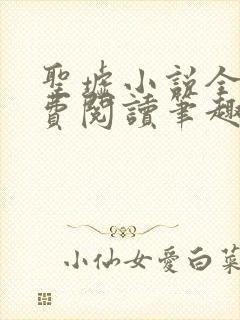 聖墟小説全
費閱讀筆趣
小仙女愛白菜